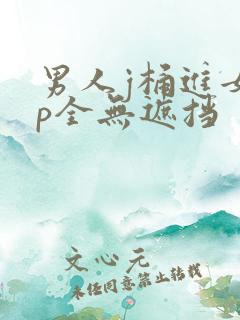 男人j桶进女
p全無遮挡
文心元
未经同意禁止转载